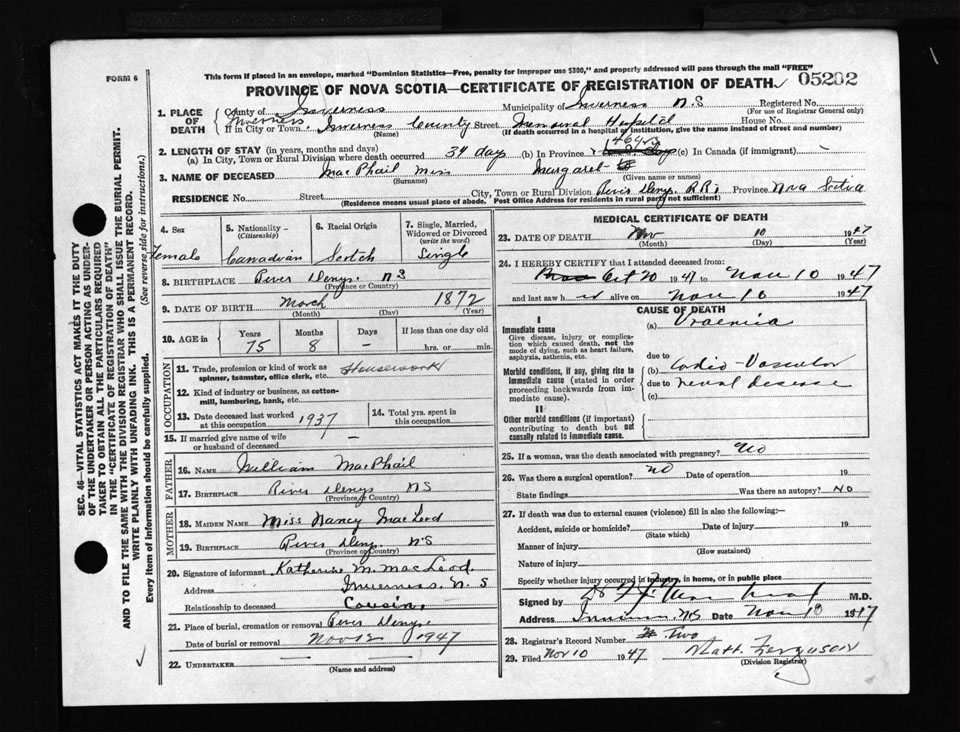 This form if placed in an envelope, marked "Dominion Statistics—Free, penalty for improper use $300," and properly addressed will pass through the mail "FREE"
FORM 6
PROVINCE OF NOVA SCOTIA—CERTIFICATE OF REGISTRATION OF DEATH 05202
1. PLACE OF DEATH
County of Inverness Municipality of Inverness N.S Registered No.
(For use of Registrar General only)
Inverness
If in City or Town Inverness County Street Memorial Hospital House No.
(Name) (If death occurred in a hospital or institution, give the name instead of street and number)
2. LENGTH OF STAY (in years, months and days)
(a) In City, Town or Rural Division where death occurred 34 days (b) In Province (c) In Canada (if immigrant) —
3. NAME OF DECEASED MacPhail Miss Margaret
(Surname) (Given name or names)
RESIDENCE No. Street City, Town or Rural Division River Denys. R.R. 1 Province Nova Scotia
(Residence means usual place of abode. Post Office Address for residents in rural parts not sufficient)
4. Sex
Female
5. Nationality (Citizenship)
Canadian
6. Racial Origin
Scotch
7. Single, Married, Widowed or Divorced (write the word)
Single
8. BIRTHPLACE River Denys N S
(Province or Country)
9. DATE OF BIRTH March 1872
(Month) (Day) (Year)
10. AGE in Years Months Days If less than one day old
75 8 – hrs. or min.
OCCUPATION
11. Trade, profession or kind of work as spinner, teamster, office clerk, etc. Housework
12. Kind of industry or business, as cotton-mill, lumbering, bank, etc.
13. Date deceased last worked at this occupation 1937
14. Total yrs. spent in this occupation
15. If married give name of wife or husband of deceased —
FATHER
16. NAME William MacPhail
17. BIRTHPLACE River Denys NS
(Province or Country)
MOTHER
18. MAIDEN NAME Miss Nancy MacLeod
19. BIRTHPLACE River Denys N.S
(Province or Country)
20. Signature of informant Katherine M. MacLeod
Address Inverness, N. S
Relationship to deceased Cousin
21. Place of burial, cremation or removal River Denys.
Date of burial or removal Nov 12 1947
22. UNDERTAKER
(Name and address)
MEDICAL CERTIFICATE OF DEATH
23. DATE OF DEATH Nov 10 1947
(Month) (Day) (Year)
24. I HEREBY CERTIFY that I attended deceased from:
Oct 20 1947 to Nov 10 1947
and last saw h er alive on Nov 10 1947
CAUSE OF DEATH
I
Immediate cause
Give disease, injury or complication which caused death, not the mode of dying, such as heart failure, asphyxia, asthenia, etc.
(a) Uraemia
due to
Morbid conditions, if any, giving rise to immediate cause (stated in order proceeding backwards from immediate cause).
(b) Cardio-Vascular
due to renal disease
(c)
II
Other morbid conditions (if important) contributing to death but not causally related to immediate cause.
25. If a woman, was the death associated with pregnancy? No
26. Was there a surgical operation? No Date of operation 19
State findings Was there an autopsy? No
27. If death was due to external causes (violence) fill in also the following:—
Accident, suicide or homicide? Date of injury 19
(State which)
Manner of injury
(How sustained)
Nature of injury
Specify whether injury occurred in industry, in home, or in public place
Signed by M.D.
Address Inverness NS Date Nov 10 1947
28. Registrar's Record Number # Two
29. Filed Nov 10 1947 Matt. Ferguson
(Division Registrar)
SEC. 46—VITAL STATISTICS ACT MAKES IT THE DUTY
OF THE UNDERTAKER OR PERSON ACTING AS UNDER-
TAKER TO OBTAIN ALL THE PARTICULARS REQUIRED
IN THE "CERTIFICATE OF REGISTRATION OF DEATH"
AND TO FILE THE SAME WITH THE DIVISION REGISTRAR WHO SHALL ISSUE THE BURIAL PERMIT.
WRITE PLAINLY WITH UNFADING INK. THIS IS A PERMANENT RECORD.
Every item of information should be carefully supplied. (See reverse side for instructions.)